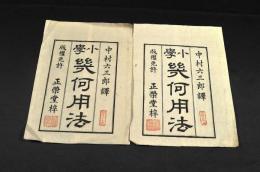 中村六三郎譯
小學
幾何用法
版權免許 正榮堂梓
中村六三郎譯
小學
幾何用法
版權免許 正榮堂梓